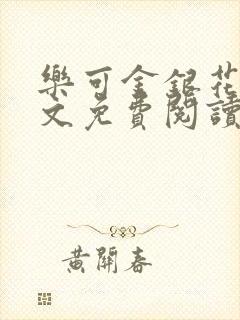 樂可金銀花
文免費閱讀
黃開春